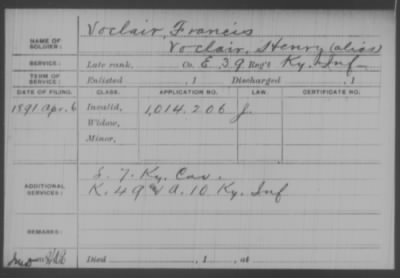 NAME OF SOLDIER: Voclair, Francis
Voclair, Henry (alias)
SERVICE: Late rank, Co. E. 39 Reg't Ky. Inf
TERM OF SERVICE: Enlisted , 1 Discharged , 1
DATE OF FILING. CLASS. APPLICATION NO. LAW. CERTIFICATE NO.
1891 Apr. 6 Invalid, 1,014.206 J.
Widow,
Minor,
ADDITIONAL SERVICES: E. 7. Ky. Cav.
K. 49 & A. 10 Ky. Inf
REMARKS:
Died , 1 , at